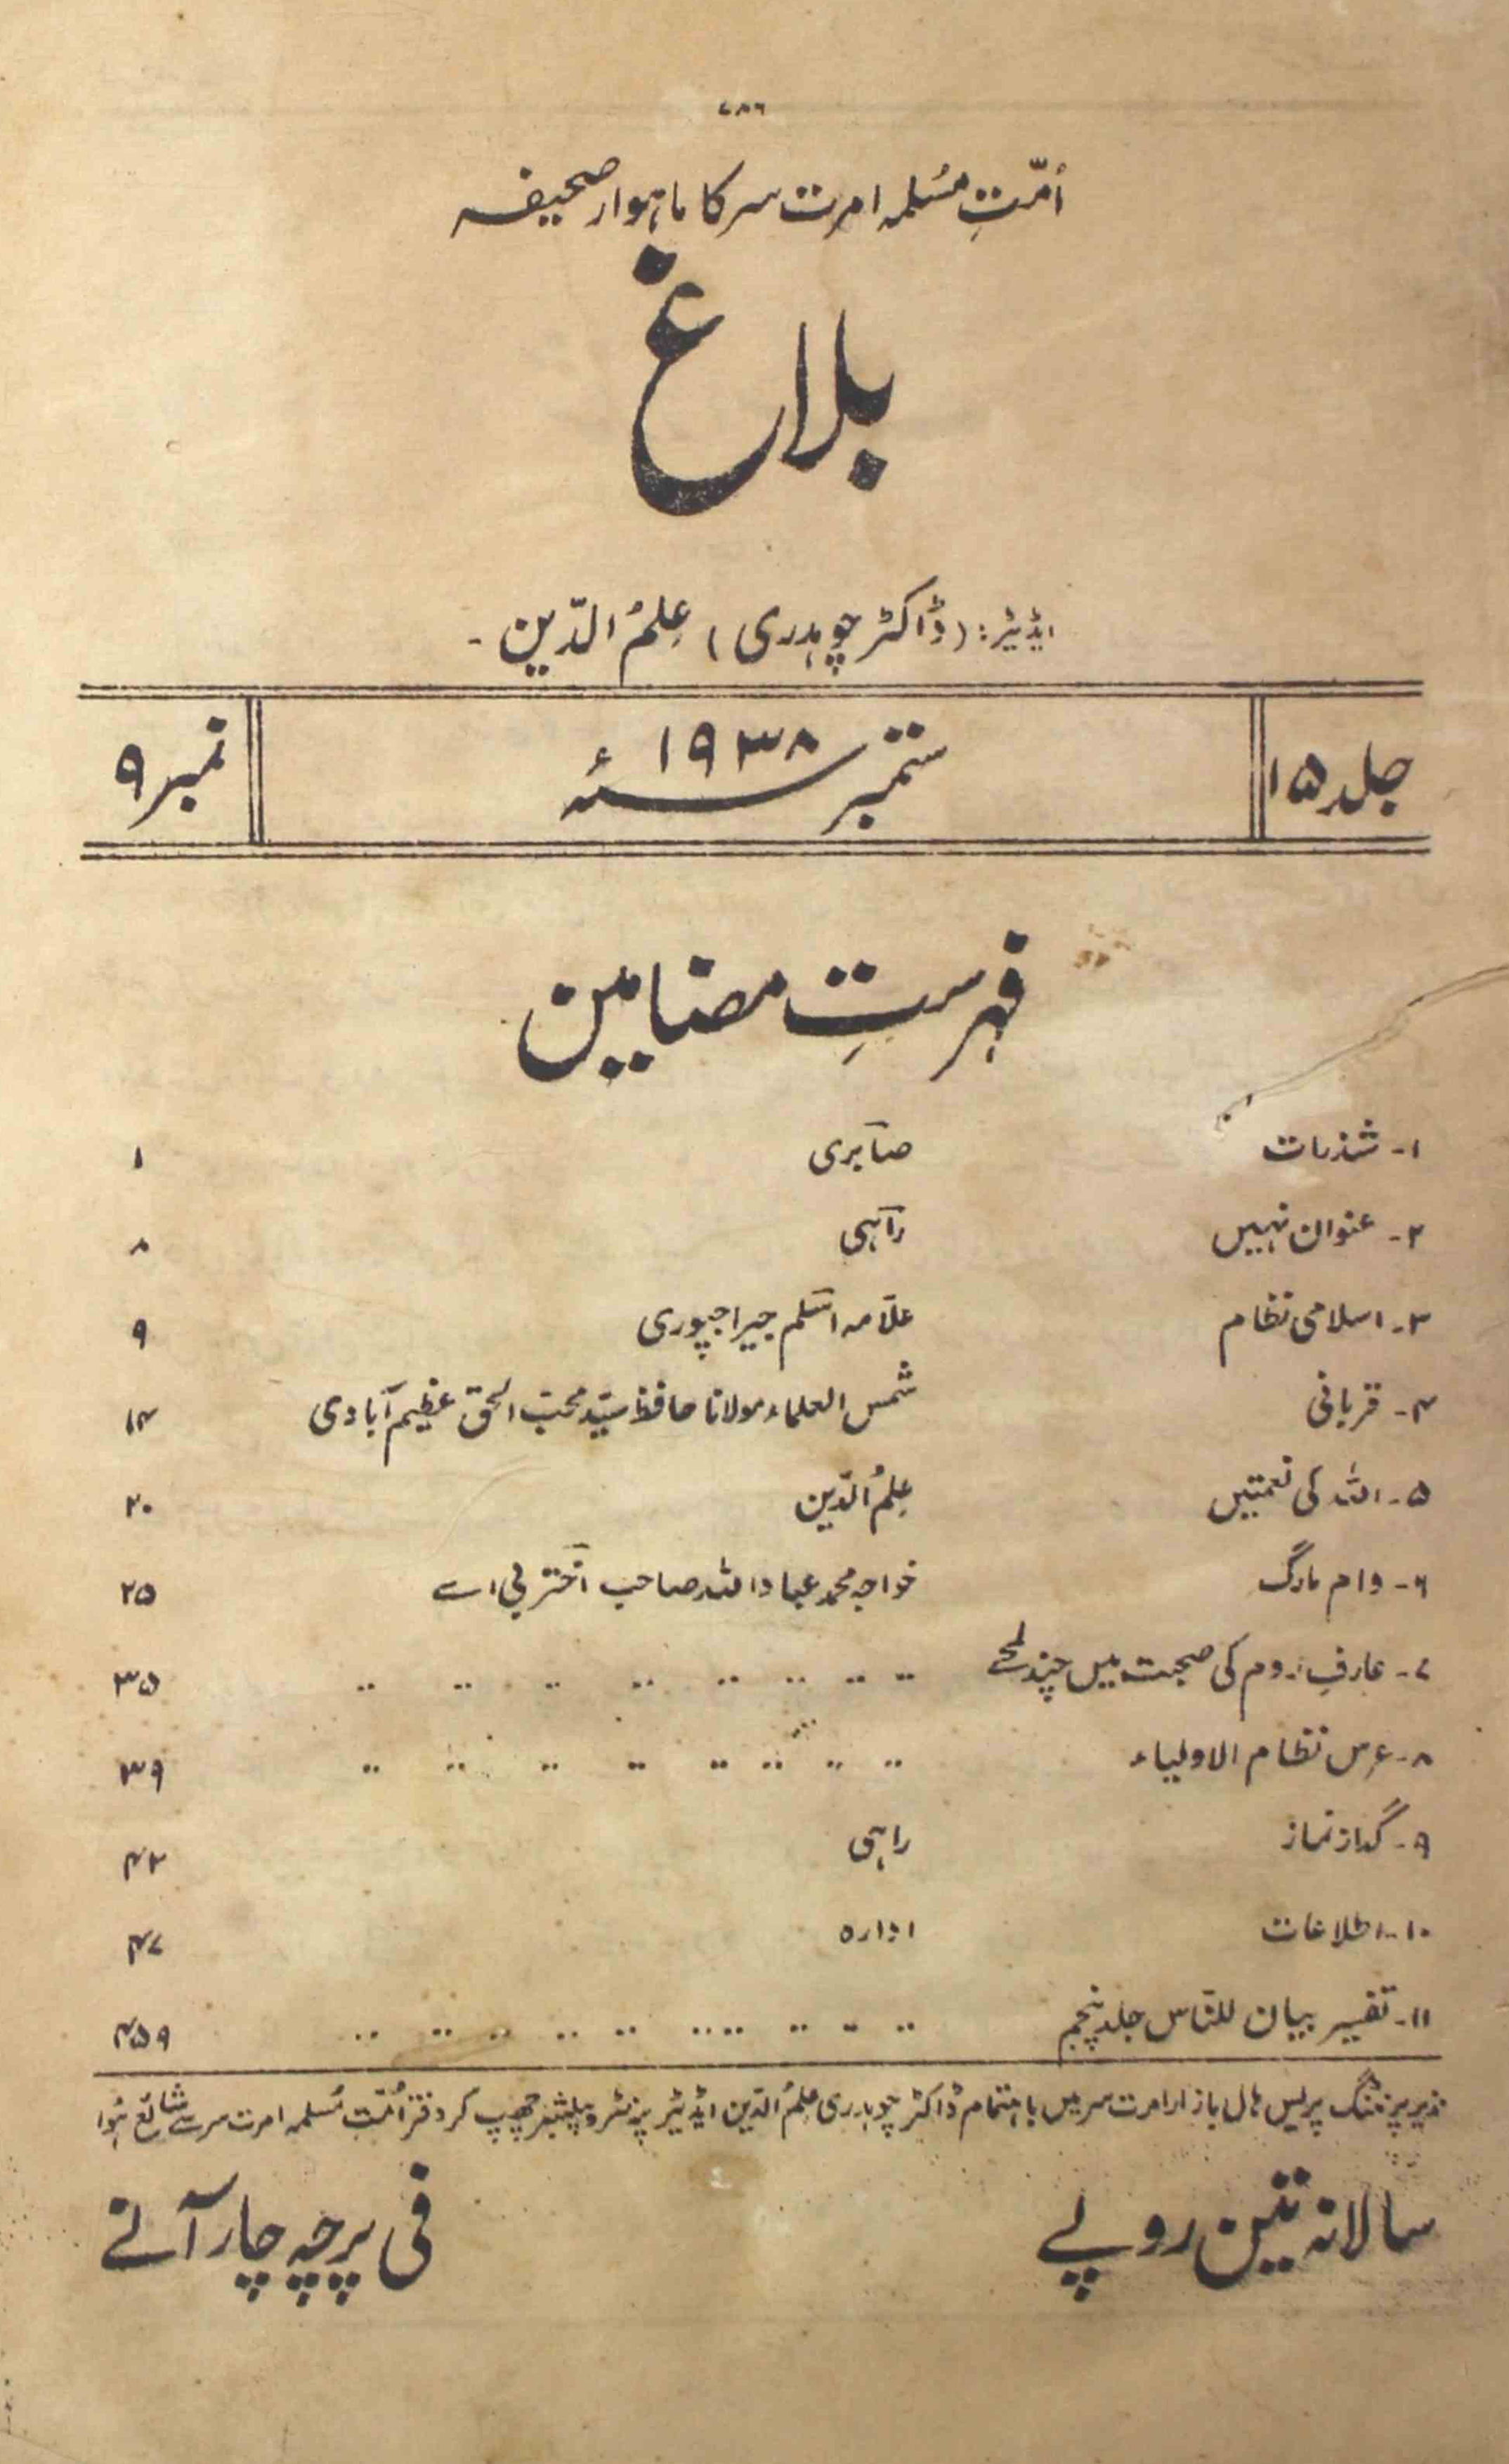 ۷۸۶
اُمّتِ مُسلمہ امرت سر کا ماہوار صحیفہ
بلاغ
ایڈیٹر: (ڈاکٹر چوہدری) عِلمُ الدّین -
جلد ۱۵ ستمبر ۱۹۳۸ سنہء نمبر ۹
فہرستِ مضامین
۱- شذرات صابری ۱
۲- عنوان نہیں راہی ۸
۳- اسلامی نظام علّامہ اسلم جیراجپوری ۹
۴- قربانی شمس العلماء مولانا حافظ سیّد محب الحق عظیم آبادی ۱۴
۵- اللہ کی نعمتیں عِلمُ الدّین ۲۰
۶- وام مارگ خواجہ محمد عباداللہ صاحب اختر بی اے ۲۵
۷- عارفِ روم کی صحبت میں چند لمحے ۳۵
۸- عرس نظام الاولیاء ۳۹
۹- گداز نماز راہی ۴۲
۱۰- اطلاعات ادارہ ۴۷
۱۱- تفسیر بیان للنّاس جلد پنجم ۴۵۹
نذیر پرنٹنگ پریس ہال بازار امرت سر میں باہتمام ڈاکٹر چوہدری عِلمُ الدّین ایڈیٹر پرنٹر و پبلشر چھپ کر دفتر اُمّت مُسلمہ امرت سر سے شائع ہُوا
سالانہ تین روپے فی پرچہ چار آنے